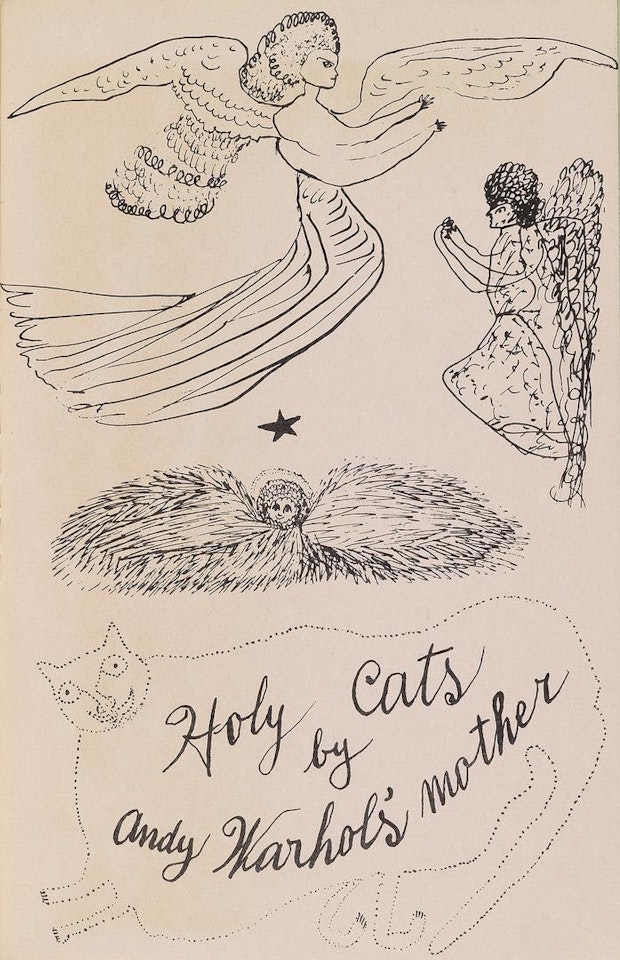 Holy Cats
by
Andy Warhol's mother